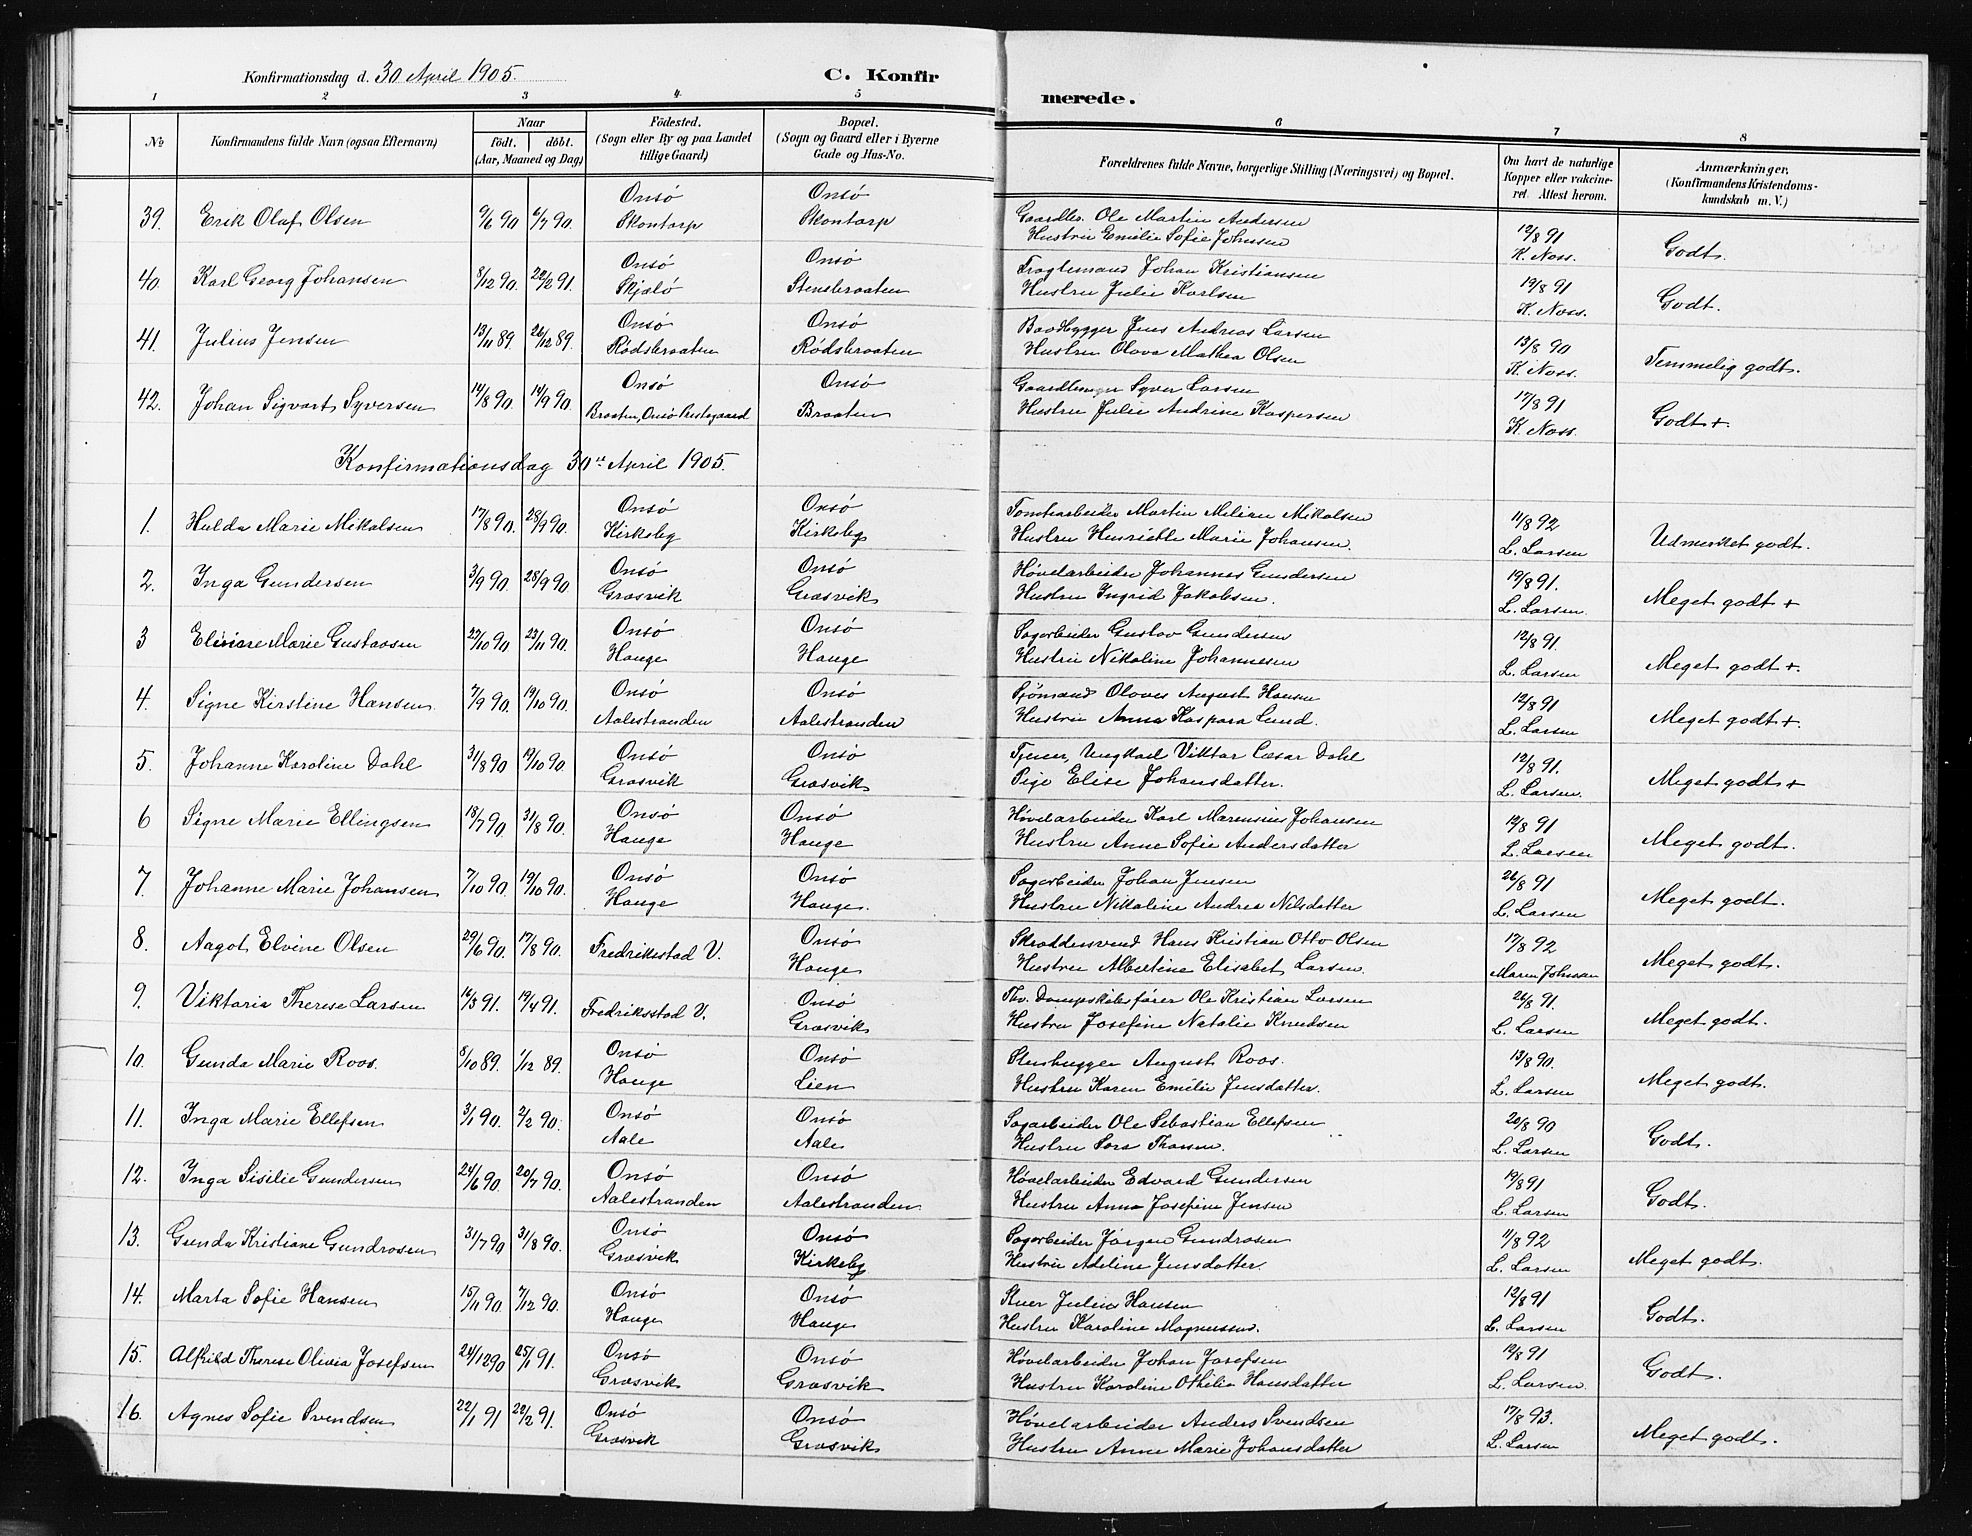 Konfirmationsdag d. 30 April 1905. C. Konfirmerede.
1 2 3 4 5 6 7 8
No
Konfirmandens fulde Navn (ogsaa Efternavn)
Naar
født. døbt.
(Aar, Maaned og Dag)
Fødested.
(Sogn eller By og paa Landet
tillige Gaard)
Bopæl.
(Sogn og Gaard eller i Byerne
Gade og Hus-No.
Forældrenes fulde Navne, borgerlige Stilling (Næringsvei) og Bopæl.
Om havt de naturlige
Kopper eller vakcine-
ret. Attest herom.
Anmærkninger.
(Konfirmandens Kristendoms-
kundskab m. V.)
Onsö Onsö Gaardbr. Ole Martin Andersen
39. Erik Olaf Olsen 9/6 90 6/7 90. Skontorp Skontorp Hustru Emilie Sofie Johnsen 12/8 91 K. Noss. Godt.
Onsö Onsö Fragtemand Johan Kristiansen
40. Karl Georg Johansen 8/12 90. 22/2 91. Skjælö Stensbraaten Hustru Julie Karlsen 19/8 91 K. Noss. Godt.
Onsö Onsö Baadbygger Jens Andreas Larsen
41. Julius Jensen 13/11 89. 26/12 89. Rödsbraaten Rödsbraaten Hustru Olava Mathea Olsen 13/8 90 K. Noss. Temmelig godt.
Onsö Onsö Syver Larsen
42. Johan Sigvart Syversen 14/8 90. 14/9 90. Braaten, Onsö Prestegaard Braaten Hustru Julie Andrine Kaspersen 17/8 91 K. Noss. Godt +.
Konfirmationsdag 30te April 1905.
Onsö Onsö Tomtearbeider Martin Milian Mikalsen
1. Hulda Marie Mikalsen 17/8 90. 28/9 90. Kirkeby Kirkeby Hustru Henriette Marie Johansen. 11/8 92 L. Larsen Udmerket godt.
Onsö Onsö Hövelarbeider Johannes Gundersen
2. Inga Gundersen 3/9 90. 28/9 90. Græsvik Græsvik Hustru Ingrid Jakobsen. 19/8 91. L. Larsen. Meget godt +
Onsö Onsö Sagarbeider Gustav Gundersen
3 Marie Gustavsen 27/10 90. 23/11 90. Hauge Hauge Hustru Nikoline Johannesen 12/8 91. L. Larsen Meget godt +.
Onsö Onsö Sjömand Olaves August Hansen
4. Signe Kirstine Hansen. 7/9 90. 19/10 90. Aalestranden Aalestranden Hustru Anna Kaspara Lund. 12/8 91 L. Larsen Meget godt +.
Onsö Onsö Tjener, Ungkarl Viktor Cæsar Dahl
5. Johanne Karoline Dahl 31/8 90 19/10 90. Græsvik Græsvik Pige Elise Johansdatter. 12/8 91. L. Larsen. Meget godt +
Onsö Onsö Hövelarbeider Karl Marensius Johansen
6 Signe Marie Ellingsen 18/7 90. 31/8 90. Hauge Hauge Hustru Anne Sofie Andersdatter 19/8 91 L. Larsen Meget godt.
Onsö Onsö Sagarbeider Johan Jensen
7. Johanne Marie Johansen 7/10 90. 19/10 90. Hauge Hauge. Hustru Nikoline Andrea Nilsdatter 26/8 91 L. Larsen Meget godt.
Onsö Skræddersvend Hans Kristian Otto Olsen
8. Aagot Elvine Olsen 29/6 90. 17/8 90. Fredriksstad V. Hauge Hustru Albertine Elisabet Larsen. 17/8 92 Maren Johnsen Meget godt.
Onsö Thv. Dampskibsförer Ole Kristian Larsen
9. Viktoria Therese Larsen 14/3 91. 19/4 91. Fredriksstad V. Græsvik Hustru Josefine Natalie Knudsen 26/8 91. L. Larsen Meget godt.
Onsö Onsö Stenhugger August Roos.
10. Gunda Marie Roos. 8/10 89. 1/12 89. Hauge Lien Hustru Karen Emilie Jensdatter. 13/8 90. L. Larsen Meget godt.
Onsö Onsö Sagarbeider Ole Sebastian Ellefsen
11. Inga Marie Ellefsen 3/1 90. 2/2 90. Aale Aale Hustru Sara Thoresen. 20/8 90 L. Larsen Godt.
Onsö Onsö Hövelarbeider Edvard Gundersen
12. Inga Sisilie Gundersen 24/6 90. 20/7 90. Aalestranden Aalestranden Hustru Anna Josefine Jensen 19/8 91 L. Larsen Godt.
Onsö Onsö Sagarbeider Jörgen Gundrosen
13. Gunda Kristiane Gundrosen 31/7 90 31/8 90. Græsvik Kirkeby Hustru Adeline Jensdatter. 11/8 92 L. Larsen Meget godt.
Onsö Onsö Stuer Julius Hansen
14. Marta Sofie Hansen 15/11 90. 7/12 90. Hauge Hauge Hustru Karoline Magnussen. 12/8 91 L. Larsen Godt.
Onsö Onsö Hövelarbeider Johan Josefsen
15. Alfhild Therese Olivia Josefsen 24/12 90 25/1 91. Græsvik Græsvik Hustru Karoline Othilie Hansdatter 12/8 91 L. Larsen. Godt.
Onsö Onsö Hövelarbeider Anders Svendsen
16. Agnes Sofie Svendsen 22/1 91 22/2 91. Græsvik Græsvik Hustru Anne Marie Johansdatter 17/8 93. L. Larsen Meget godt.